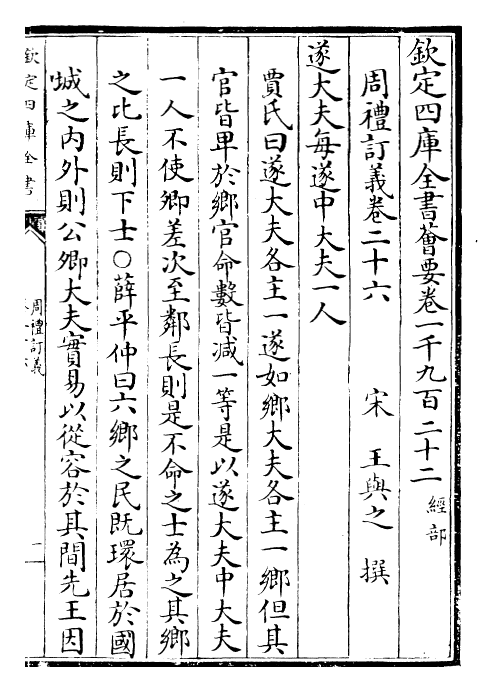 欽定四庫全書薈要卷一千九百二十二 經部
周禮訂義卷二十六　宋　王與之　撰
遂大夫每遂中大夫一人
賈氏曰遂大夫各主一遂如鄉大夫各主一鄉但其
官皆卑於鄉官命數皆減一等是以遂大夫中大夫
一人不使卿差次至鄰長則是不命之士為之其鄉
之比長則下士○薛平仲曰六鄉之民既環居於國
城之內外則公卿大夫實易以從容於其間先王因
欽定四庫全書
周禮訂義